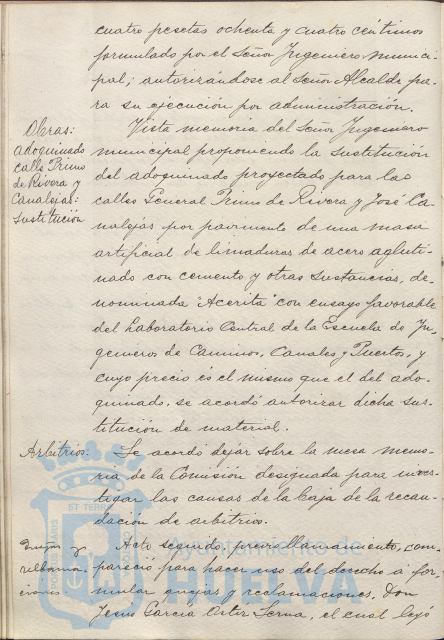 cuatro pesetas ochenta y cuatro centimos
formulado por el Señor Ingeniero munici-
pal; autorizándose al Señor Alcalde pa-
ra su ejecución por administración.
Obras:
adoquinado
calle Primo
de Rivera y
Canalejas:
sustitución
Vista memoria del Señor Ingeniero
municipal proponiendo la sustitución
del adoquinado proyectado para las
calles General Primo de Rivera y José Ca-
nalejas por pavimento de una masa
artificial de limaduras de acero agluti-
nado con cemento y otras sustancias, de-
nominada "Acerita" con ensayo favorable
del Laboratorio Central de la Escuela de In-
genieros de Caminos, Canales y Puertos, y
cuyo precio és el mismo que el del ado-
quinado, se acordó autorizar dicha sus-
titución de material.
Arbitrios:
Se acordó dejar sobre la mesa memo-
ria de la Comisión designada para inves-
tigar las causas de la baja de la recau-
dación de arbitrios.
Quejas y
reclama-
ciones
Acto seguido, previo llamamiento, com-
pareció para hacer uso del derecho a for-
mular quejas y reclamaciones, Don
Jesús García Serna, el cual leyó
Ayuntamiento de
HUELVA